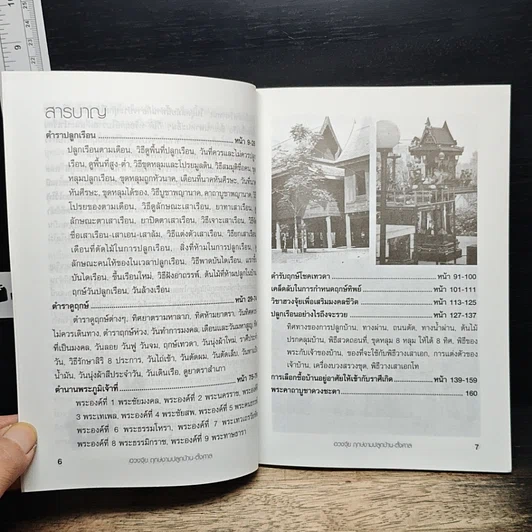 สารบาญ
ตำราปลูกเรือน หน้า 9-28
ปลูกเรือนตามเดือน, วิธีดูพื้นที่ปลูกเรือน, วันที่ควรและไม่ควรปลูก
เรือน, ดูพื้นที่สูง-ต่ำ, วิธีสมมุติชื่อคน, ขุด
หลุมปลูกเรือน, ขุดหลุมถูกหัวนาค, เดือนที่นาคหันศีรษะ, วัน
หันศีรษะ, ขุดหลุมได้ของ, วิธีบูชาพญานาค, คาถาบูชาพญานาค
โปรยของตามเดือน, วิธีดูลักษณะเสาเรือน, ยาทาเสาเรือน
ลักษณะตาเสาเรือน, ยาปิดตาเสาเรือน, วิธีเจาะเสาเรือน,
ชื่อเสาเรือน-เสาเอน-เสาล้ม, วิธีแต่งตัวเสาเรือน, วิธียก
เดือนที่ตัดไม้ในการปลูกเรือน, สิ่งที่ห้ามในการปลูก
ลักษณะคนให้ของในเวลาปลูกเรือน, วิธีพาดบันไดเรือน,
บันไดเรือน, ขึ้นเรือนใหม่, วิธีฝังอาถรรพ์, ต้นไม้ที่ห้ามปลูกใน
วันปลูกเรือน, วันล้างเรือน
ตำราดูฤกษ์ หน้า 29-74
ตำราดูฤกษ์ต่างๆ, ทิศยาตรามหาลาภ, ทิศห้ามยาตรา, วัน
ไม่ควรเดินทาง, ตำราฤกษ์ห่วง, วันทำการมงคล,
ที่เป็นมงคล, วันลอย วันฟู วันจม, ฤกษ์เทวดา, วันนุ่งผ้าใหม่,
วัน, วิธีรักษาสิริ 8 ประการ, วันไถ่เข้า, วันตัดผม, วันตัดเล็บ,
น้ำมัน, วันนุ่งผ้าสีประจำวัน, วันเดินเรือ, ดูยาตราสำเภา
ตำนานพระภูมิเจ้าที่ หน้า 75-
พระองค์ที่ 1 พระชัยมงคล, พระองค์ที่ 2 พระนครราช, พระองค์
3 พระเทเพล, พระองค์ที่ 4 พระชัยสพ, พระองค์ที่ 5 พระ
พระองค์ที่ 6 พระธรรมโหรา, พระองค์ที่ 7 พระ
พระองค์ที่ 8 พระธรรมิกราช, พระองค์ที่ 9 พระทาษธารา
6
ฮวงจุ้ย ฤกษ์ยามปลูกบ้าน-ตั้งศาล
ตำรับฤกษ์โชคเทวดา หน้า 91-100
เคล็ดลับในการกำหนดฤกษ์ทิพย์ หน้า 101-111
วิชาฮวงจุ้ยเพื่อเสริมมงคลชีวิต หน้า 113-125
ปลูกเรือนอย่างไรถึงจะรวย หน้า 127-137
ทิศทางของการปลูกบ้าน, ทางผ่าน, ถนนตัด, ทางน้ำผ่าน, ต้นไม้
ปรกคลุมบ้าน, พิธีสวดถอนที่, ขุดหลุม 8 หลุม ให้ได้ 8 ทิศ, พิธีของ
พระกับเจ้าของบ้าน, ของที่จะใช้กับพิธีวางเสาเอก, การแต่งตัวของ
เจ้าบ้าน, เครื่องบวงสรวงชุด, พิธีวางเสาเอกโท
การเลือกซื้อบ้านอยู่อาศัยให้เข้ากับราศีเกิด หน้า 139-159
พระคาถาบูชาดวงชะตา 160
ฮวงจุ้ย ฤกษ์ยามปลูกบ้าน-ตั้งศาล
7